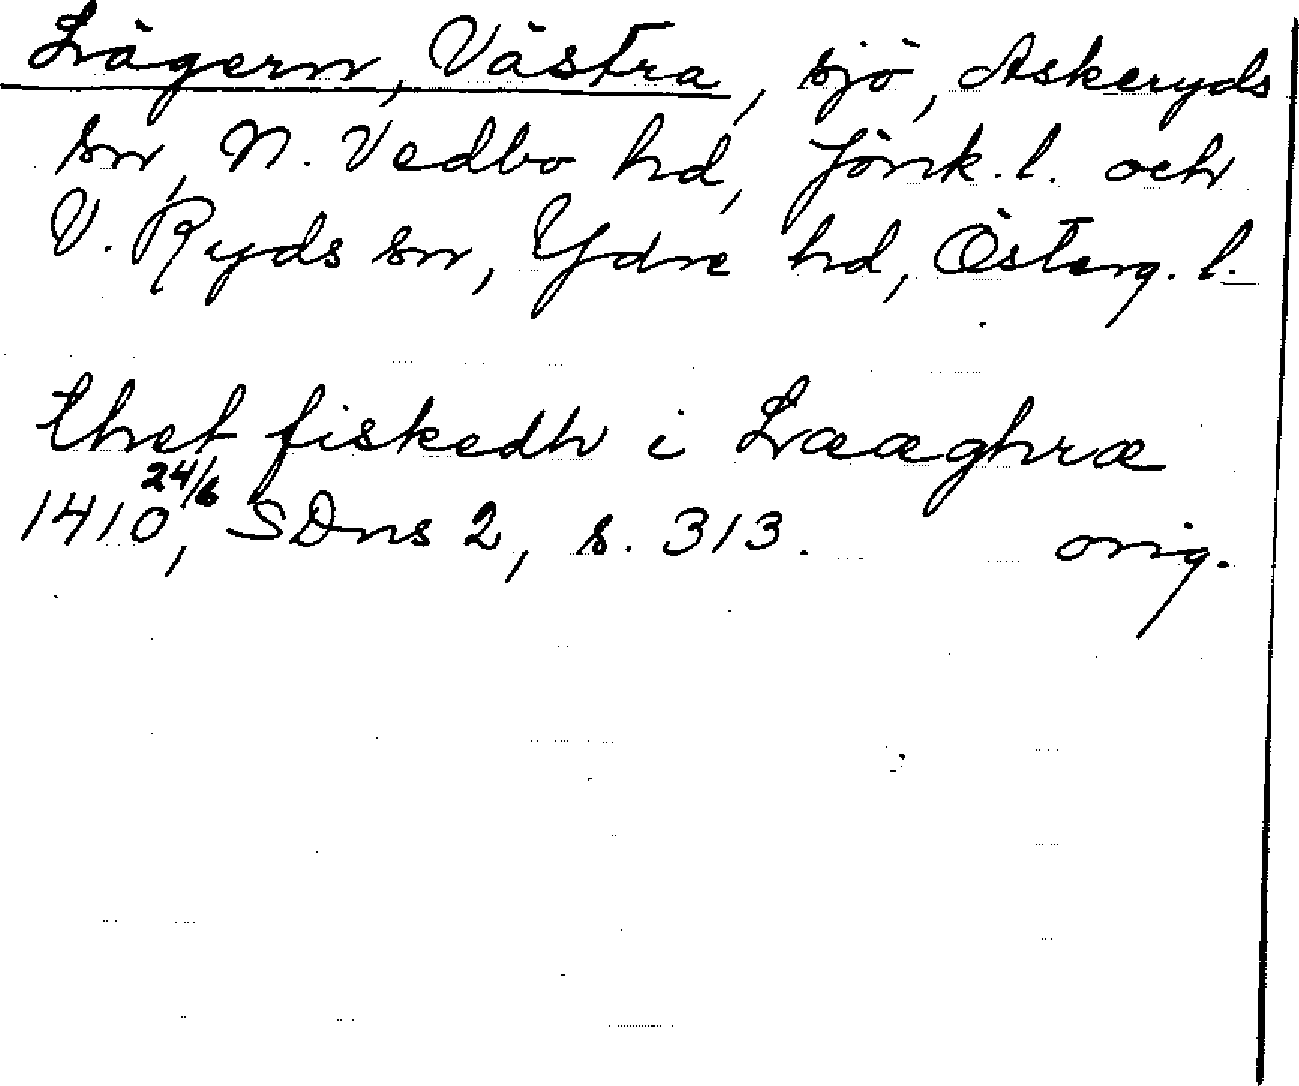 Lägern, Västra, sjö, Askeryds
sn, N. Vedbo hd, Jönk. l. och
V. Ryds sn, Ydre hd, Österg. l.
thet fiskedh i Lææghræ
1410 24/6, SDns 2, s. 313. orig.